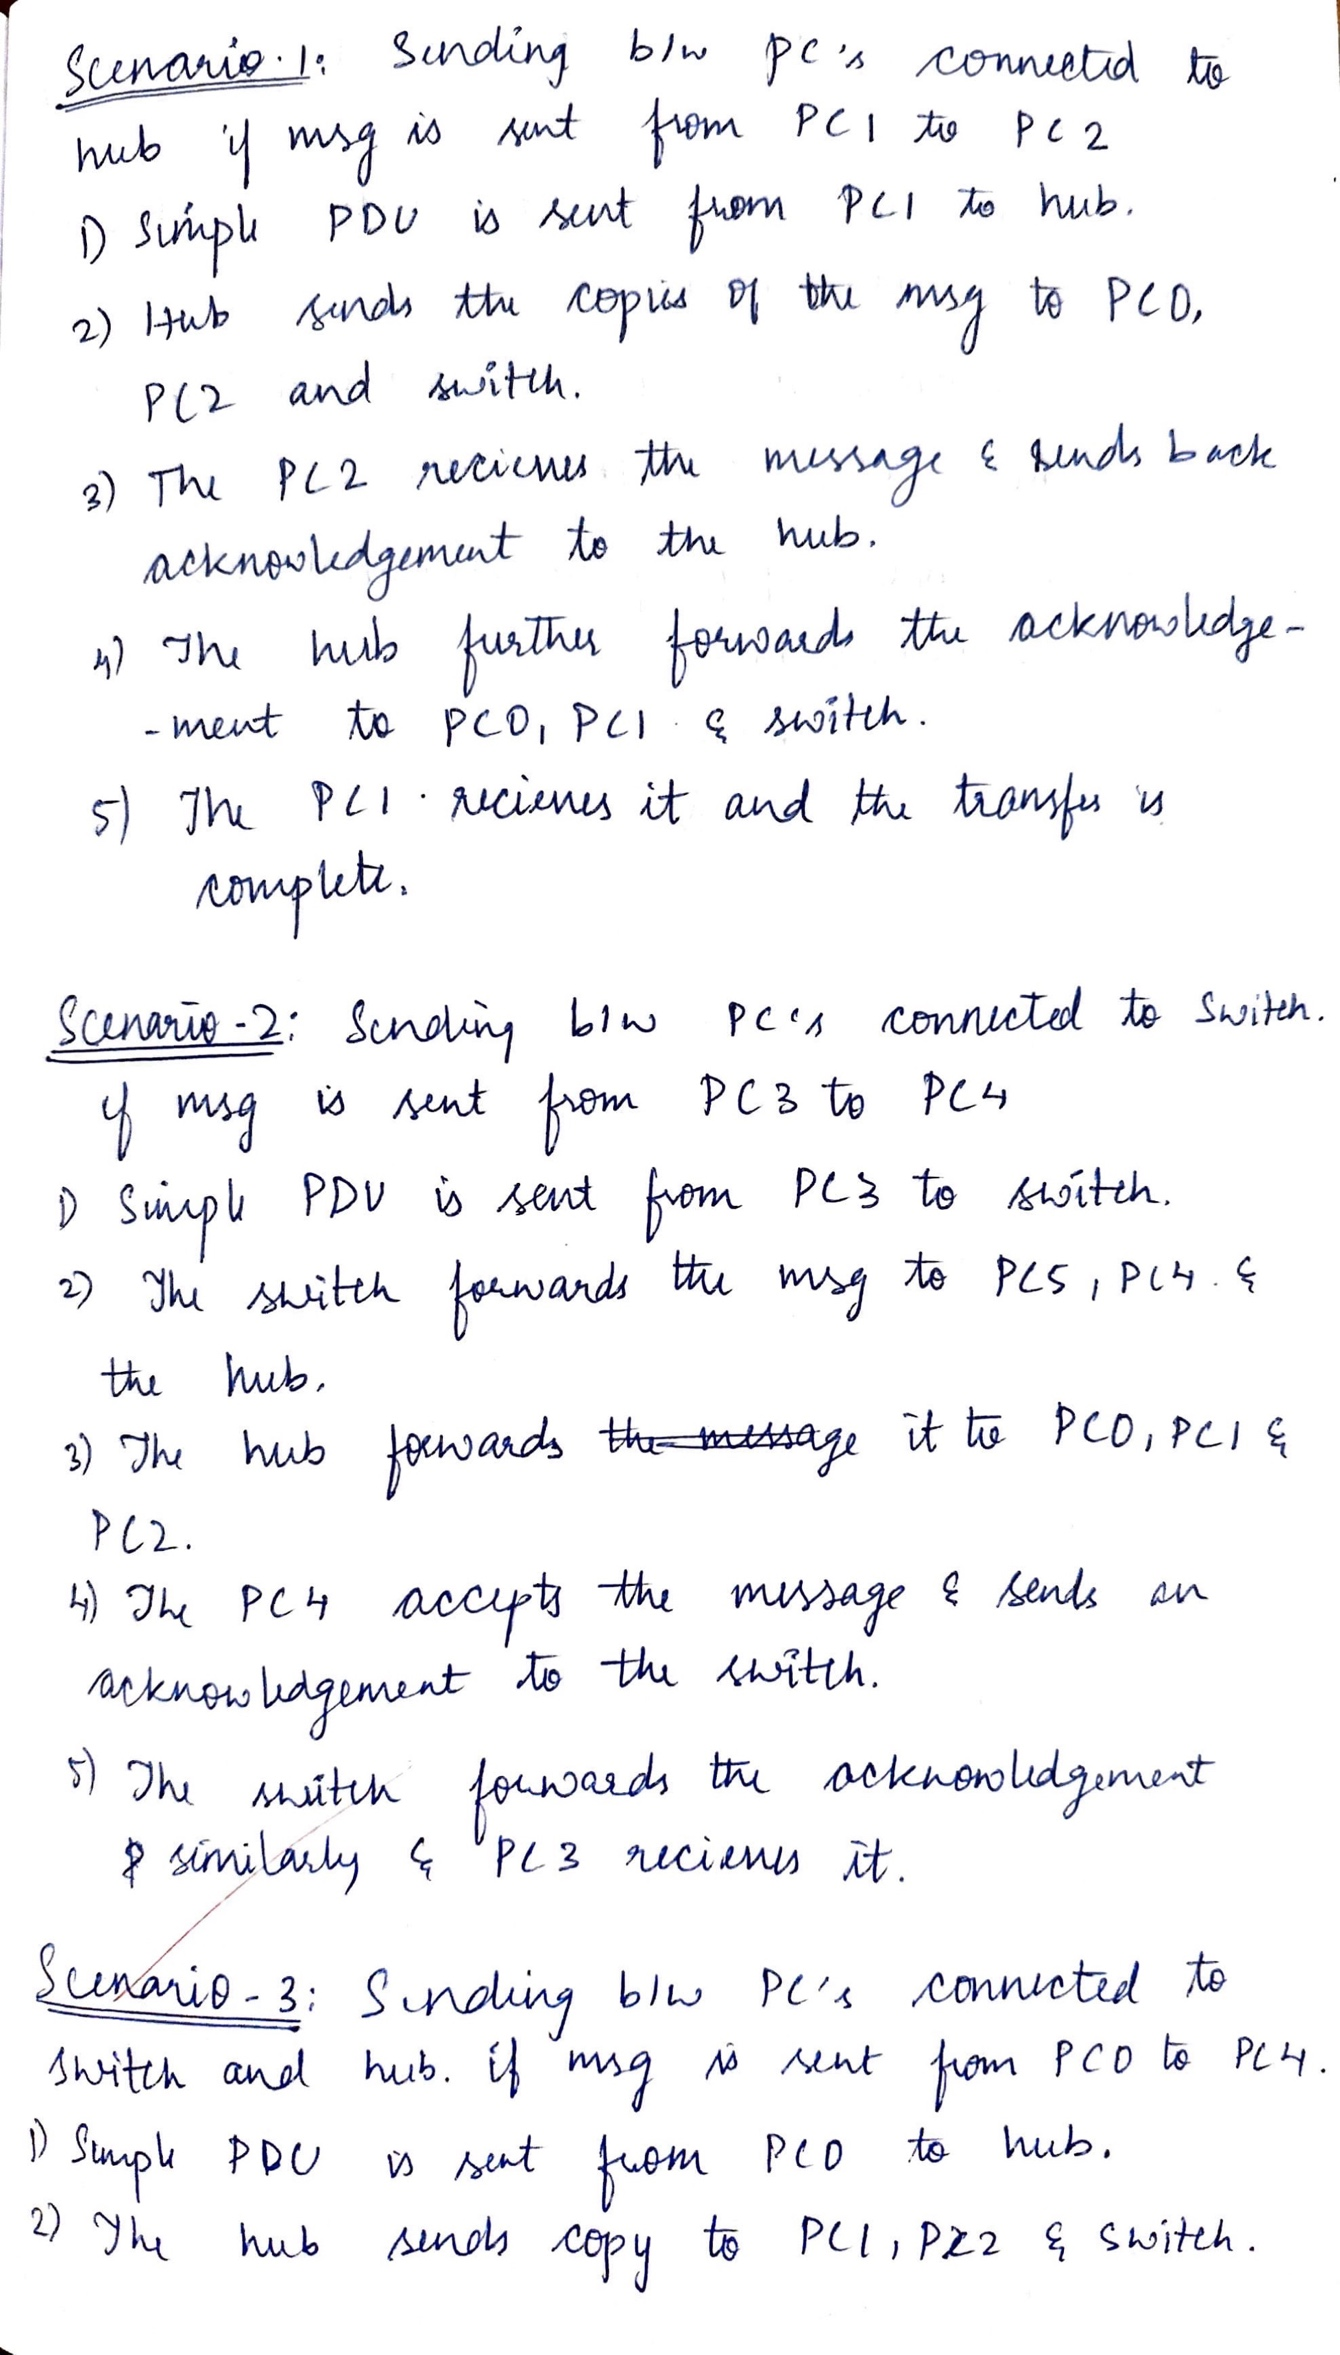 Scenario-1: Sending b/w PC's connected to
hub if msg is sent from PC1 to PC2
1) Simple PDU is sent from PC1 to hub.
2) Hub sends the copies of the msg to PC0,
PC2 and switch.
3) The PC2 recieves the message & sends back
acknowledgement to the hub.
4) The hub further forwards the acknowledge-
-ment to PC0, PC1 & switch.
5) The PC1 recieves it and the transfer is
complete.
Scenario-2: Sending b/w PC's connected to Switch.
if msg is sent from PC3 to PC4
1) Simple PDU is sent from PC3 to switch.
2) The switch forwards the msg to PC5, PC4 &
the hub.
3) The hub forwards the message it to PC0, PC1 &
PC2.
4) The PC4 accepts the message & sends an
acknowledgement to the switch.
5) The switch forwards the acknowledgement
similarly & PC3 recieves it.
Scenario-3: Sending b/w PC's connected to
switch and hub. if msg is sent from PC0 to PC4.
1) Simple PDU is sent from PC0 to hub.
2) The hub sends copy to PC1, PC2 & switch.